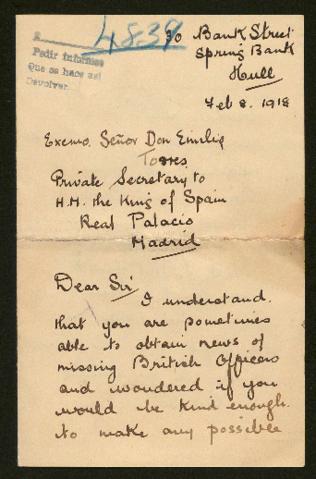 4839
70 Bank Street
Spring Bank
Hull
Pedir informes
Que se hace así
Devolver
Feb 8. 1918
Exemo. Señor Don Emilio
Torres
Private Secretary to
H.M. the King of Spain
Real Palacio
Madrid
Dear Sir
I understand
that you are sometimes
able to obtain news of
missing British Officers
and wondered if you
would be kind enough
to make any possible